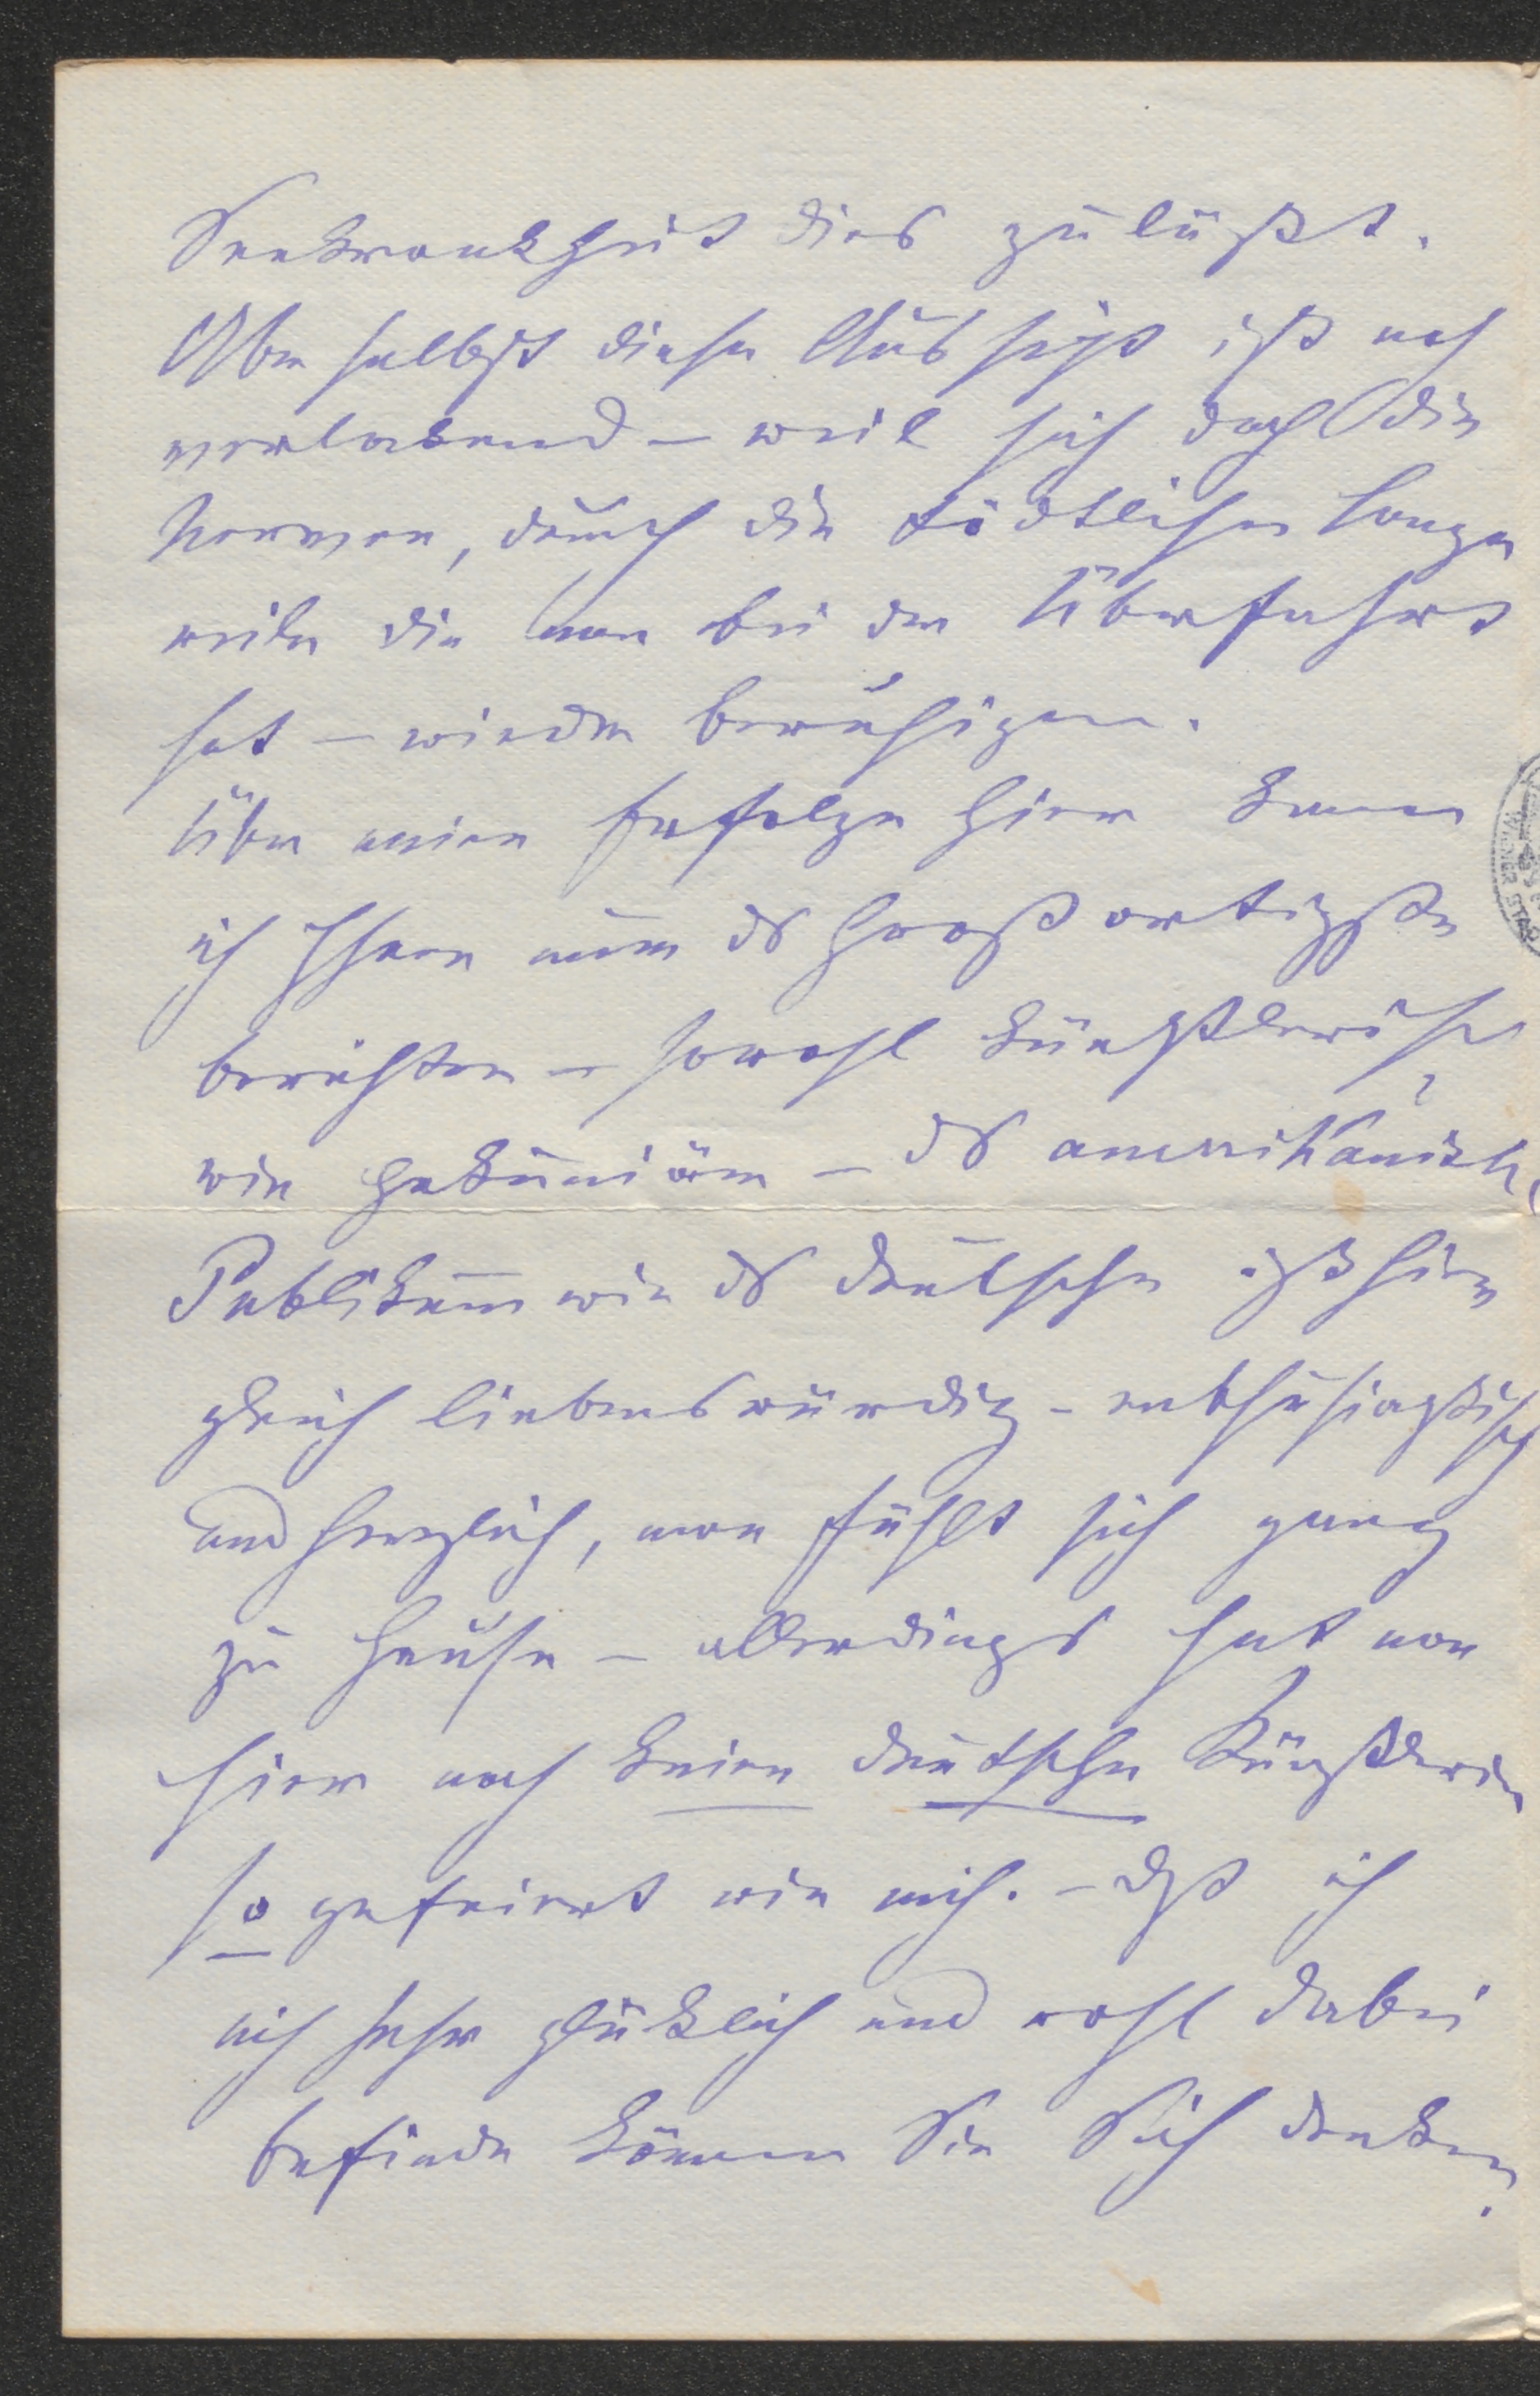 Seekrankheit dies zuläßt.
Aber selbst diese Aussicht ist noch
verlockend – weil sich doch die
Nerven, durch die tödtliche Lange
weile die man bei der Überfahrt
hat – wieder beruhigen.
Über meine Erfolge hier kann
ich Ihnen nur ds Großartigste
berichten – sowohl künstlerisch
wie pekuniär – ds amerikanische
Publikum wie ds deutsche ist hier
gleich liebenswürdig – enthusiastisch
und herzlich, man fühlt sich ganz
zu Hause – allerdings hat man
hier noch keine deutsche Künstlerin
so gefeiert wie mich. – Dß ich
mich sehr glücklich und wohl dabei
befinde können Sie Sich denken.